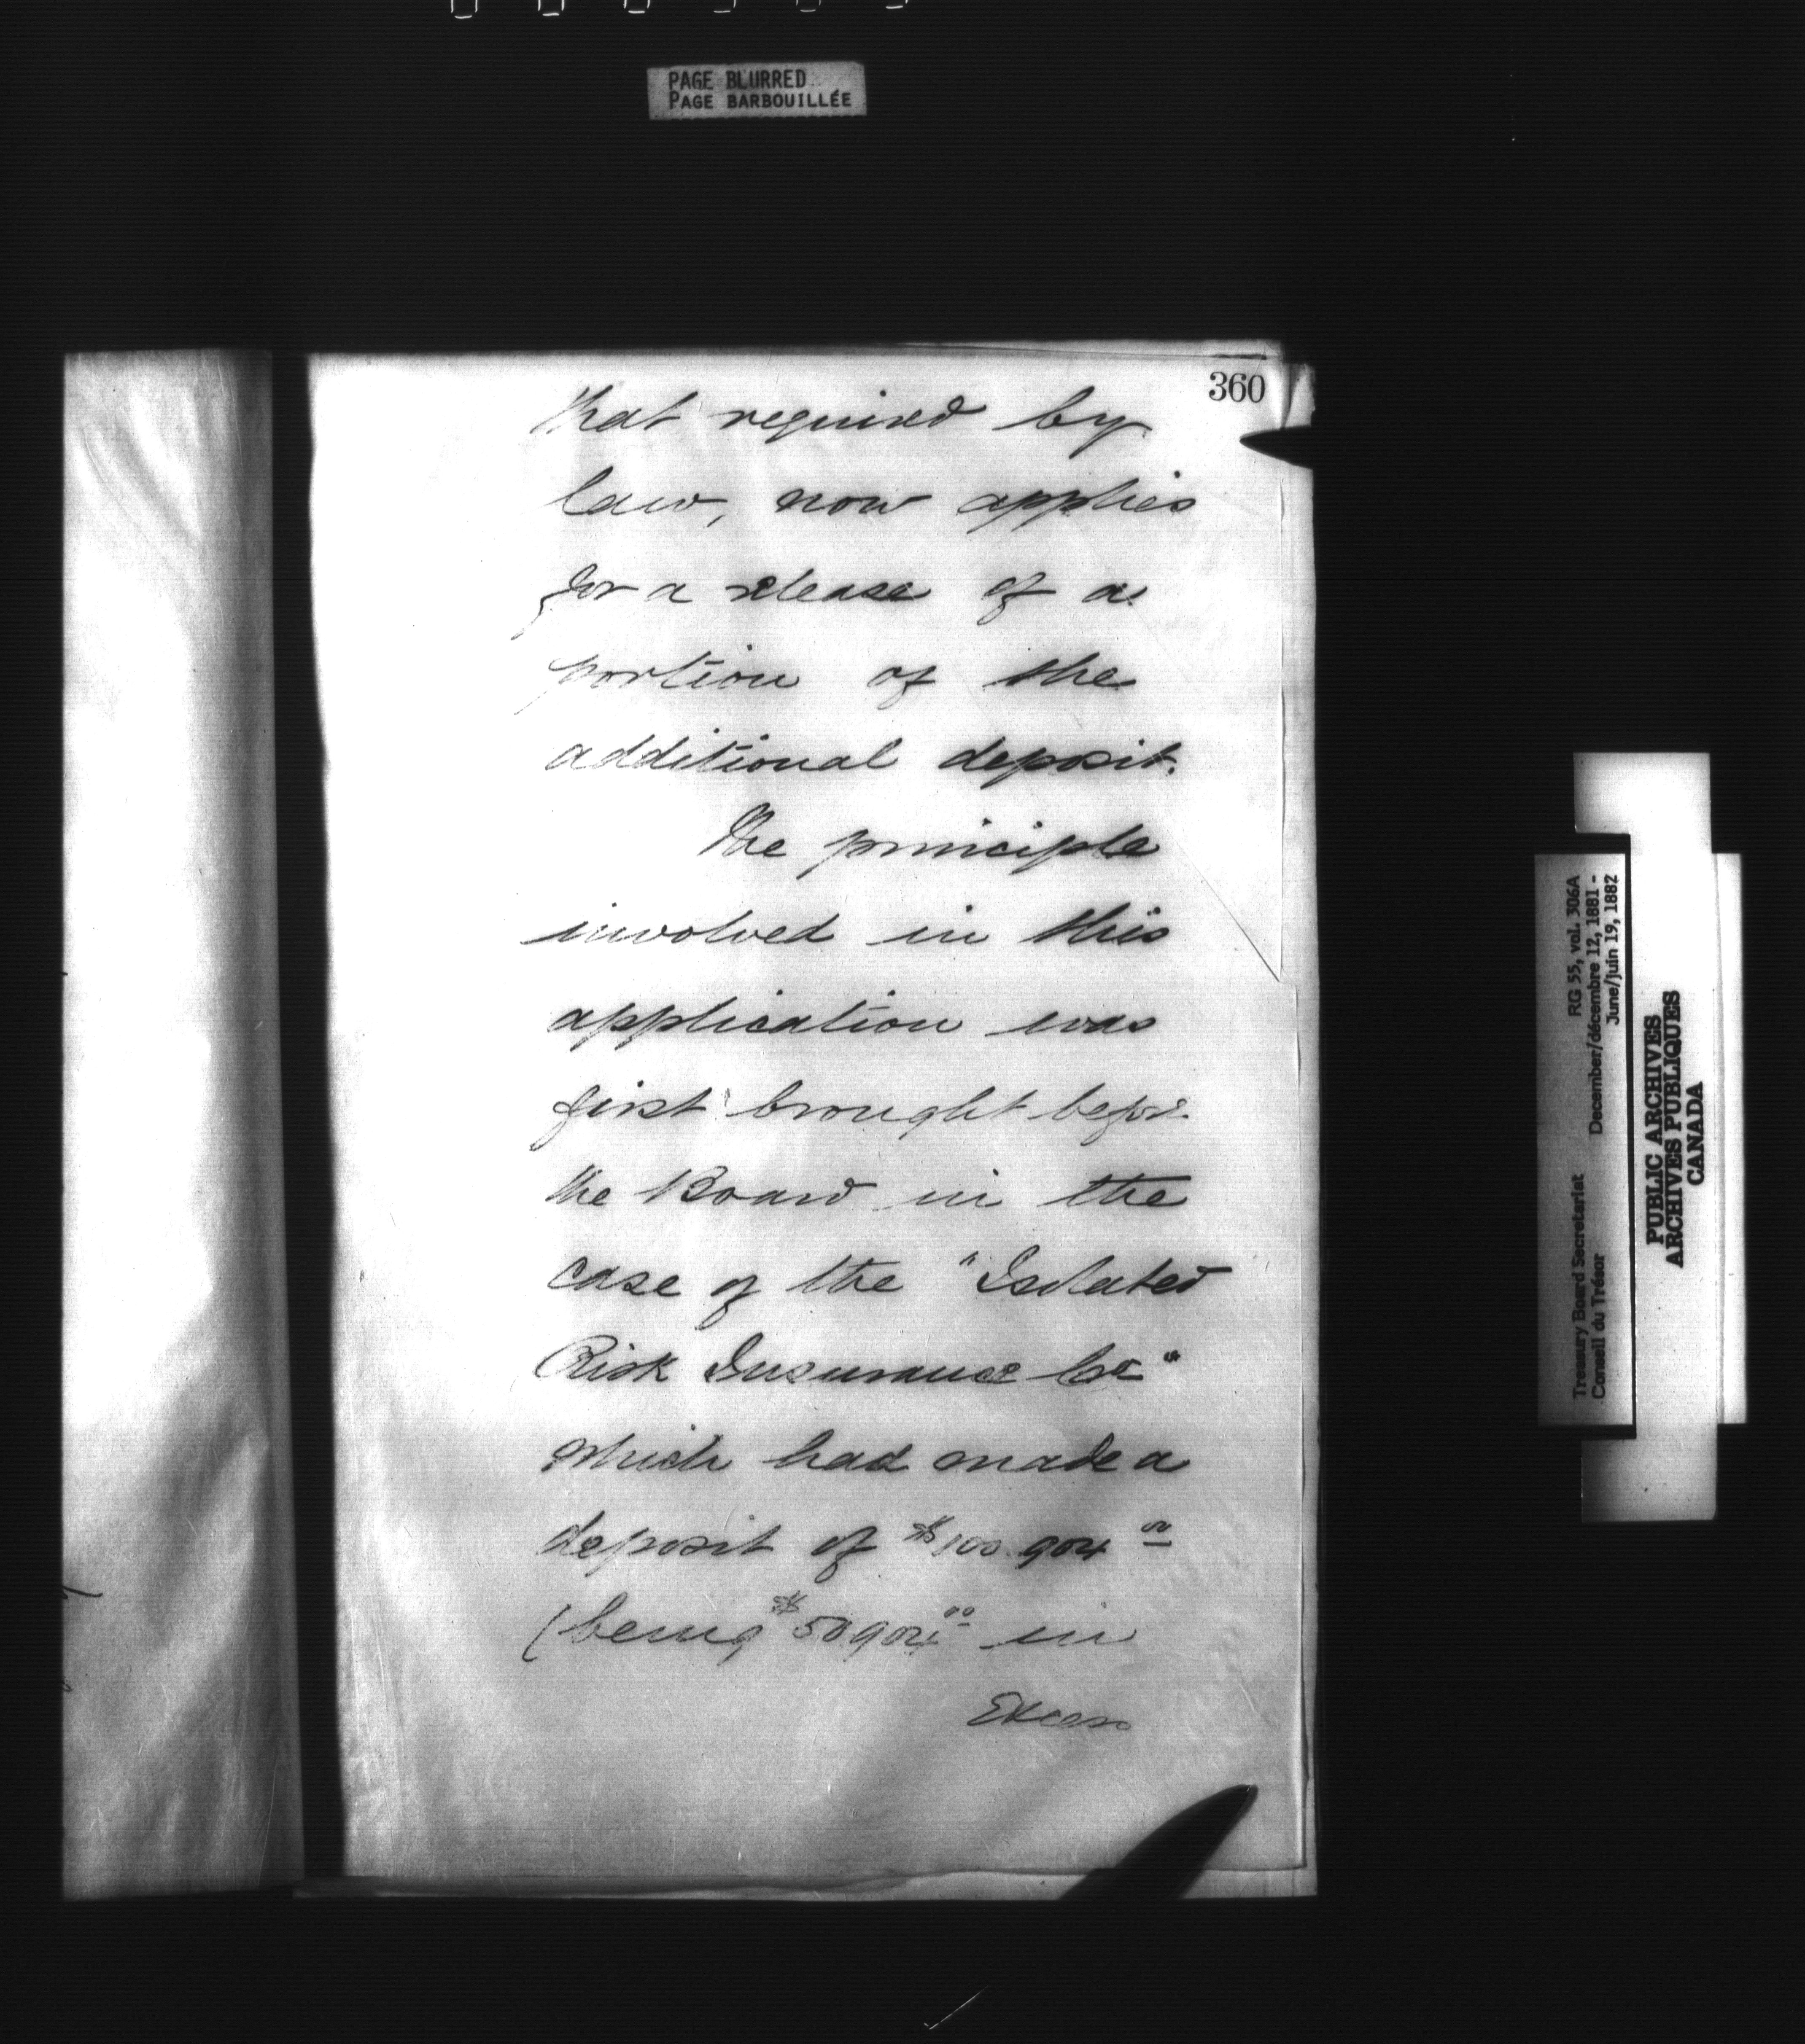 PAGE BLURRED
PAGE BARBOUILLÉE
360
that required by
law, now applies
for a release of a
portion of the
additional deposit.
The principle
involved in this
application was
first brought before
the Board in the
case of the "Isolated
Risk Insurance Co"
which had made a
deposit of $100.904 00
(being $50.904 00 in
Excess
Treasury Board Secretariat RG 55, vol. 306A
Conseil du Trésor December/décembre 12, 1881 -
June/juin 19, 1882
PUBLIC ARCHIVES
ARCHIVES PUBLIQUES
CANADA